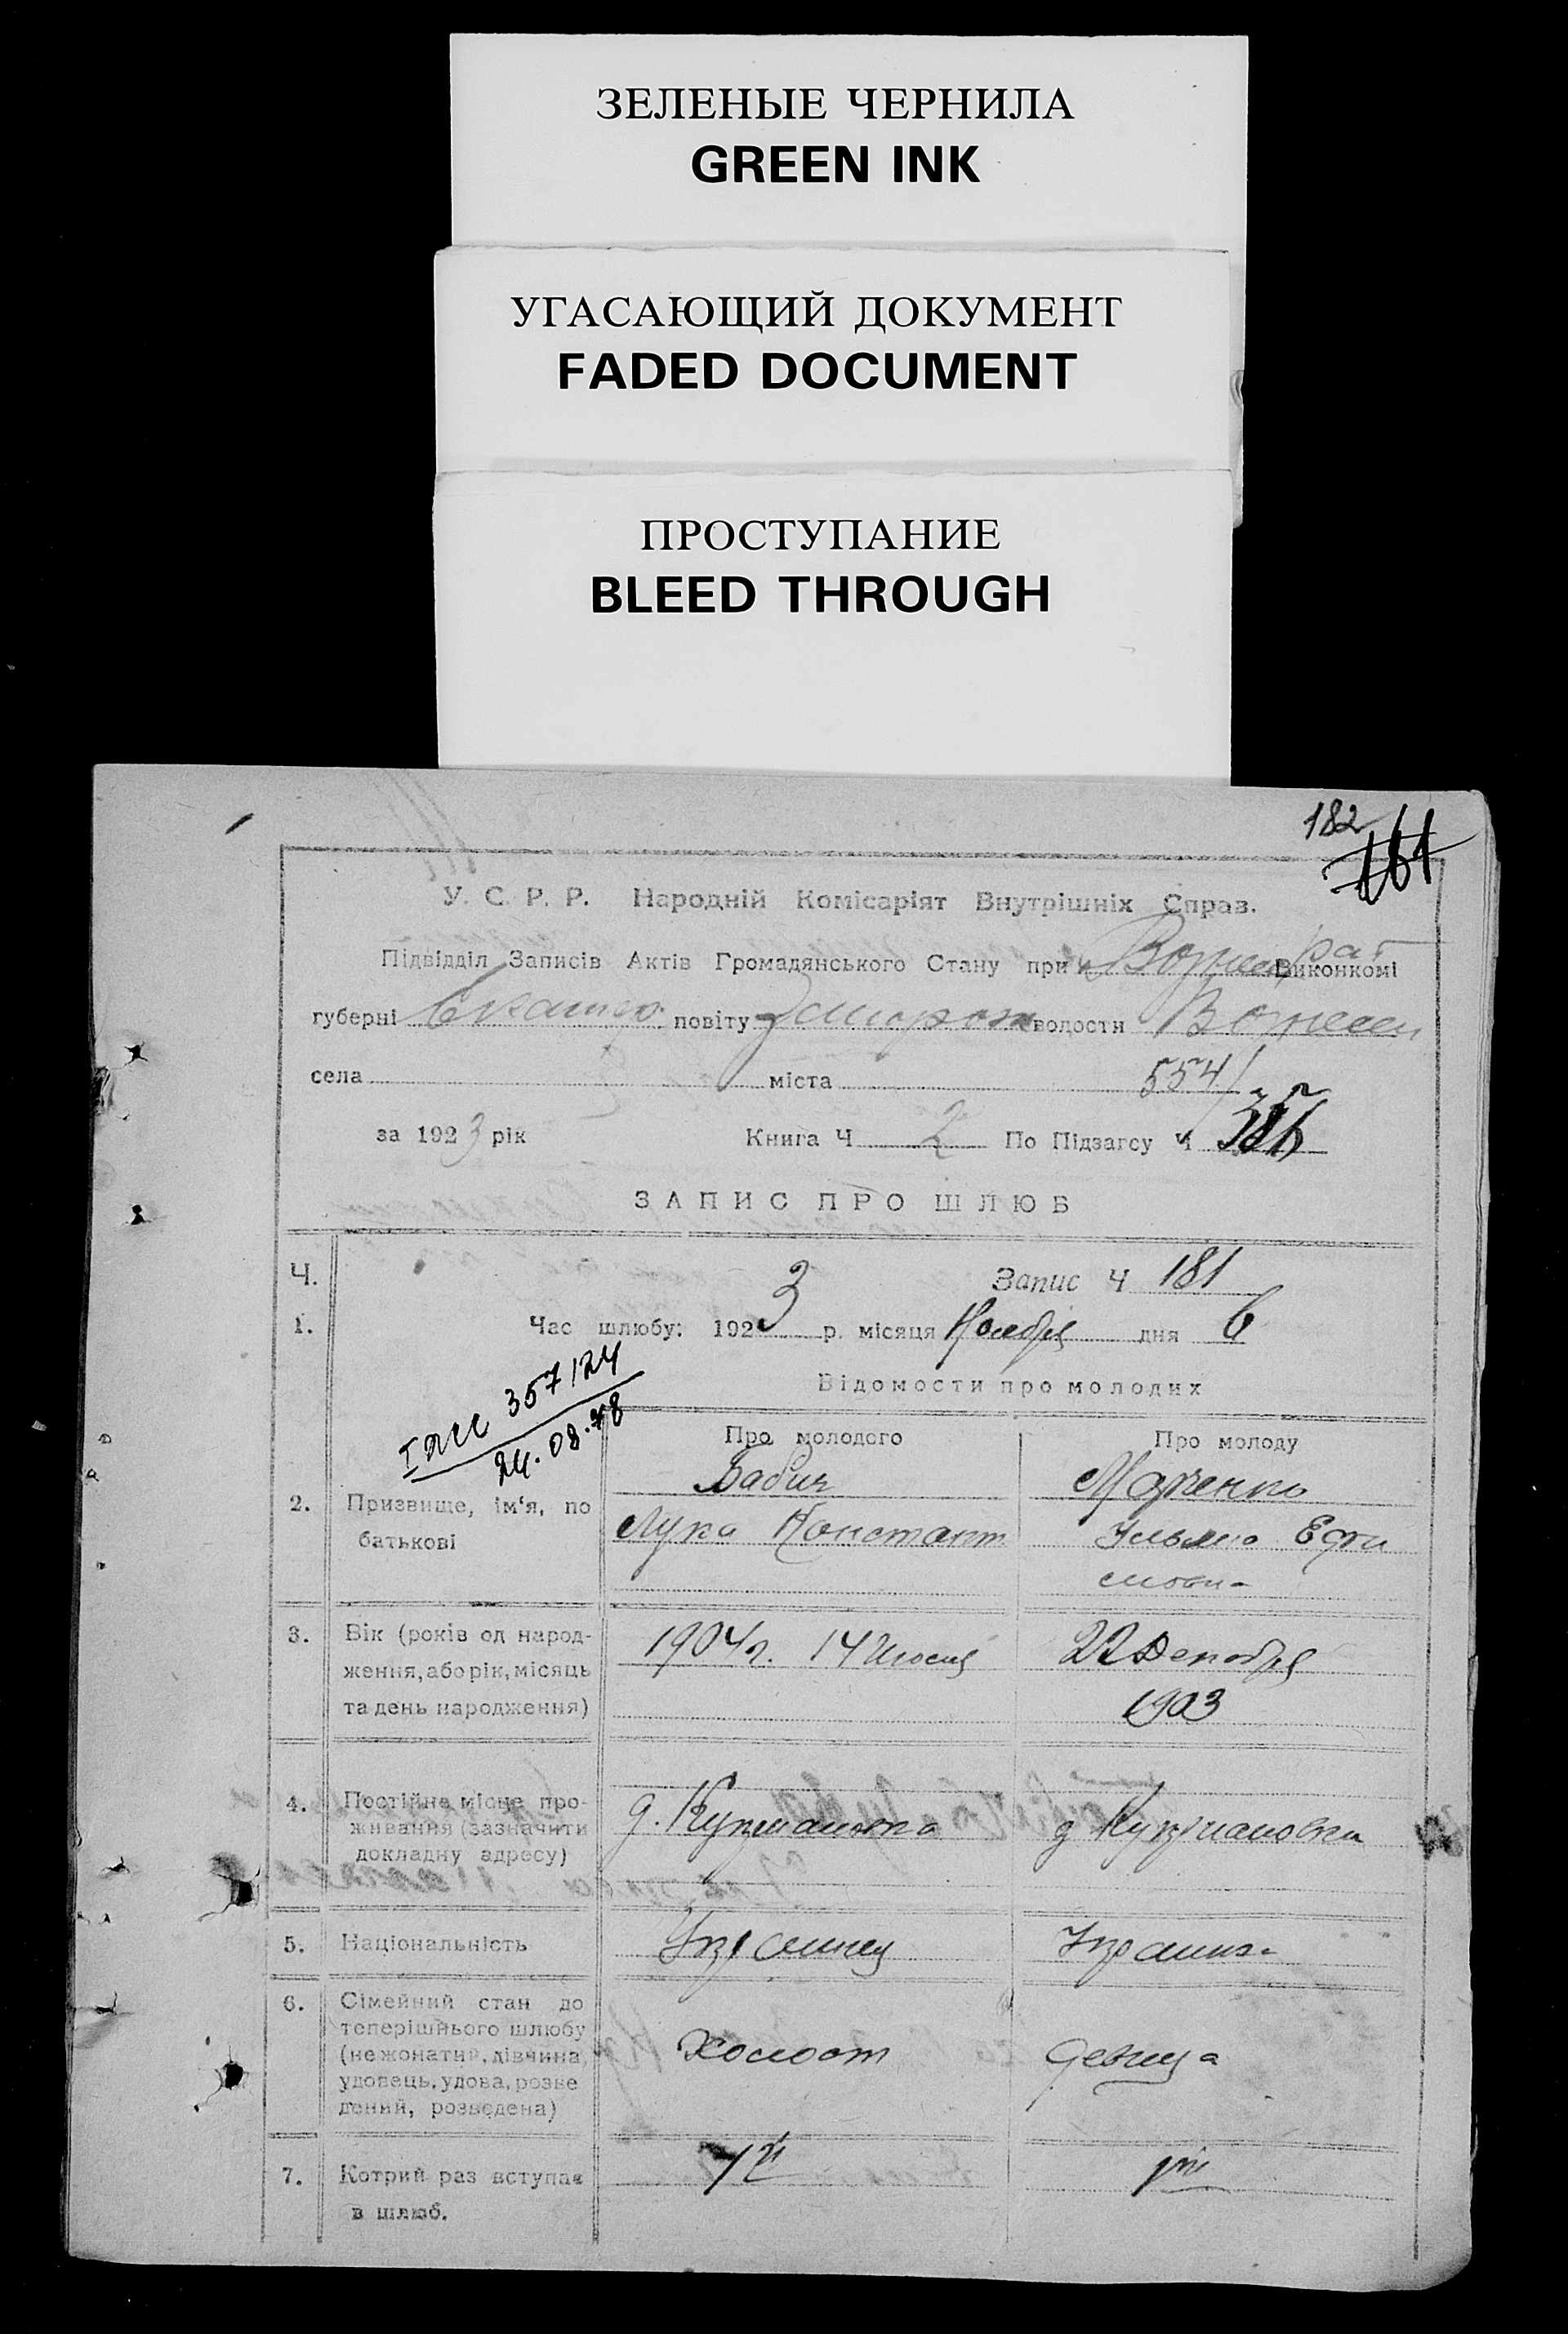 ЗЕЛЕНЫЕ ЧЕРНИЛА
GREEN INK
УГАСАЮЩИЙ ДОКУМЕНТ
FADED DOCUMENT
ПРОСТУПАНИЕ
BLEED THROUGH
182
181
У. С. Р. Р. Народній Комісаріят Внутрішніх Справ.
Підвідділ Записів Актів Громадянського Стану при Виконкомі
губерні повіту волости Вознесен
села міста 554
за 1923 рік Книга Ч 2 По Підзагсу Ч
ЗАПИС ПРО ШЛЮБ
Ч. Запис Ч 181
1. Час шлюбу: 1923 р. місяця Ноября дня 6
357/24
24.08.78
Відомости про молодих
Про молодого Про молоду
Бабич Марченко
2. Призвище, ім'я, по батькові
Лука Константи Ульяна Ефи
мовна
3. Вік (років од народ-
ження, або рік, місяць
та день народження)
1904 г. 14 Июня 22 Декабря
1903
4. Постійне місце про-
живання (зазначити
докладну адресу)
д. Купріяновка д. Купріановка
5. Національність Украинец Украинка
6. Сімейний стан до
теперішнього шлюбу
(нежонатий, дівчина,
удовець, удова, розве
дений, розведена)
Холост Девица
7. Котрий раз вступає
в шлюб.
1й 1й